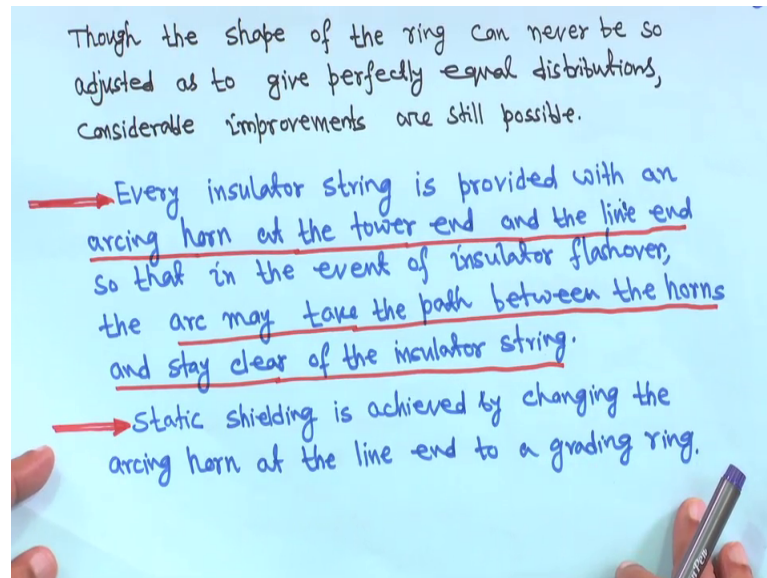 Though the shape of the ring can never be so
adjusted as to give perfectly equal distributions,
considerable improvements are still possible.
Every insulator string is provided with an
arcing horn at the tower end and the line end
so that in the event of insulator flashover,
the arc may take the path between the horns
and stay clear of the insulator string.
Static shielding is achieved by changing the
arcing horn at the line end to a grading ring.